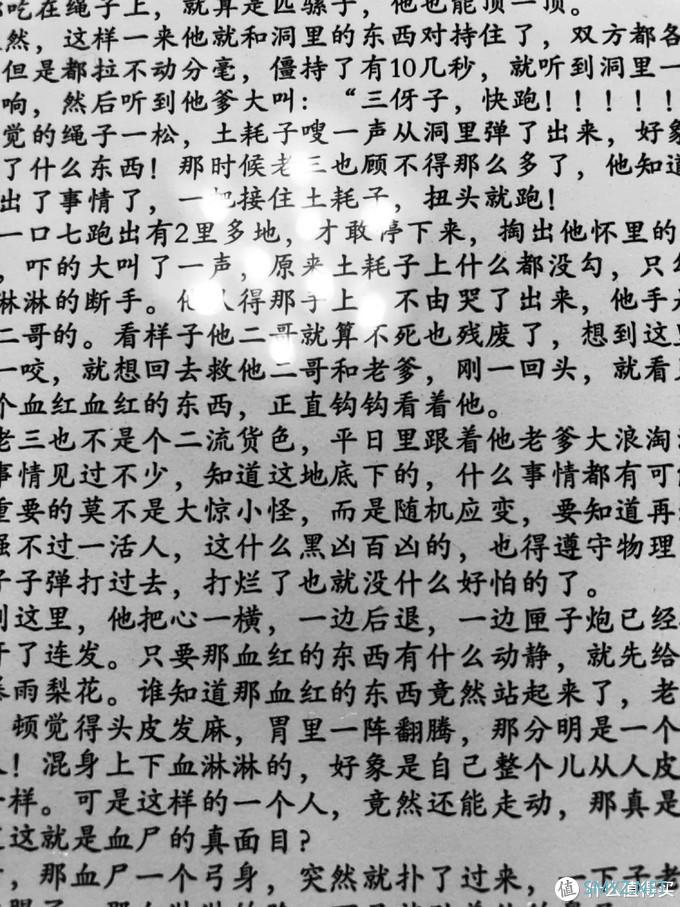 吃在绳子上，就算是匹骡子，他也能顶一顶。
然，这样一来他就和洞里的东西对持住了，双方都各
但是都拉不动分毫，僵持了有10几秒，就听到洞里一
响，然后听到他爹大叫：“三伢子，快跑！！！！！
觉的绳子一松，土耗子嗖一声从洞里弹了出来，好象
了什么东西！那时候老三也顾不得那么多了，他知道
出了事情了，一把接住土耗子，扭头就跑！
一口七跑出有2里多地，才敢停下来，掏出他怀里的
，吓的大叫了一声，原来土耗子上什么都没勾，只勾
淋淋的断手。他认得那手上 不由哭了出来，他手是
二哥的。看样子他二哥就算不死也残废了，想到这里
一咬，就想回去救他二哥和老爹，刚一回头，就看见
个血红血红的东西，正直钩钩看着他。
老三也不是个二流货色，平日里跟着他老爹大浪淘沙
事情见过不少，知道这地底下的，什么事情都有可能
重要的莫不是大惊小怪，而是随机应变，要知道再
强不过一活人，这什么黑凶百凶的，也得遵守物理
子子弹打过去，打烂了也就没什么好怕的了。
到这里，他把心一横，一边后退，一边匣子炮已经
开了连发。只要那血红的东西有什么动静，就先给
暴雨梨花。谁知道那血红的东西竟然站起来了，老
顿觉得头皮发麻，胃里一阵翻腾，那分明是一个
人！混身上下血淋淋的，好象是自己整个儿从人皮
一样。可是这样的一个人，竟然还能走动，那真是
这就是血尸的真面目？
，那血尸一个弓身，突然就扑了过来，一下子老
值 什么值得买
SMYZ.NET